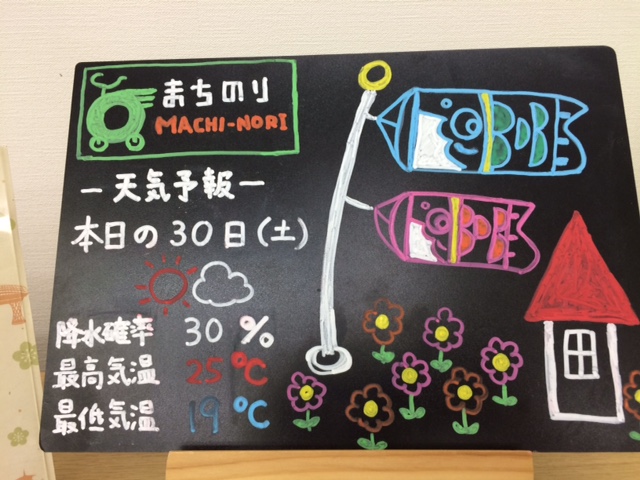 まちのり
MACHI-NORI
－天気予報－
本日の30日(土)
降水確率 30 %
最高気温 25℃
最低気温 19℃